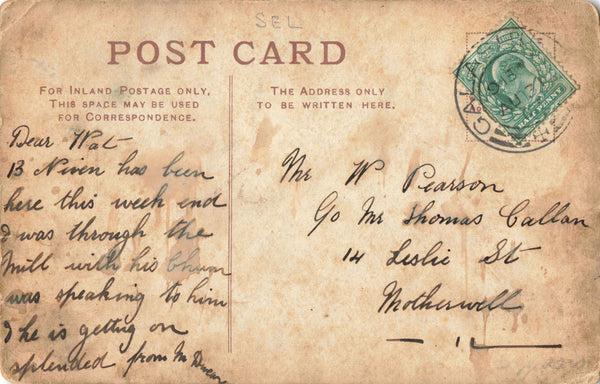 SEL
POST CARD
FOR INLAND POSTAGE ONLY,
THIS SPACE MAY BE USED
FOR CORRESPONDENCE.
THE ADDRESS ONLY
TO BE WRITTEN HERE.
GALA
HALFPENNY
Dear Wat
B Niven has been
here this week end
I was through the
Mill with his Chum
was speaking to him
I he is getting on
splended from M
Mr W Pearson
Go Mr Thomas Callan
14 Leslie St
Motherwell